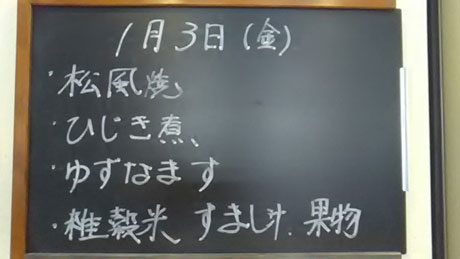 1月3日(金)
・松風焼
・ひじき煮
・ゆずなます
・雑穀米 すまし汁. 果物